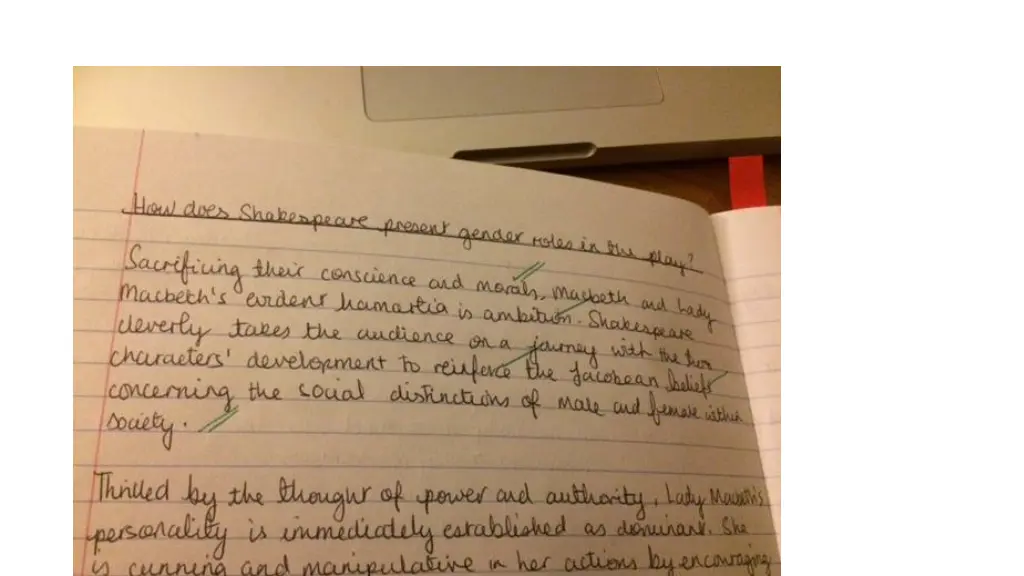 How does Shakespeare present gender roles in the play?
Sacrificing their conscience and morals, Macbeth and Lady
Macbeth's evident hamartia is ambition. Shakespeare
cleverly takes the audience on a journey with the two
characters' development to reinforce the Jacobean beliefs
concerning the social distinctions of male and female within
society.
Thrilled by the thought of power and authority, Lady Macbeth's
personality is immediately established as dominant. She
is cunning and manipulative in her actions by encouraging